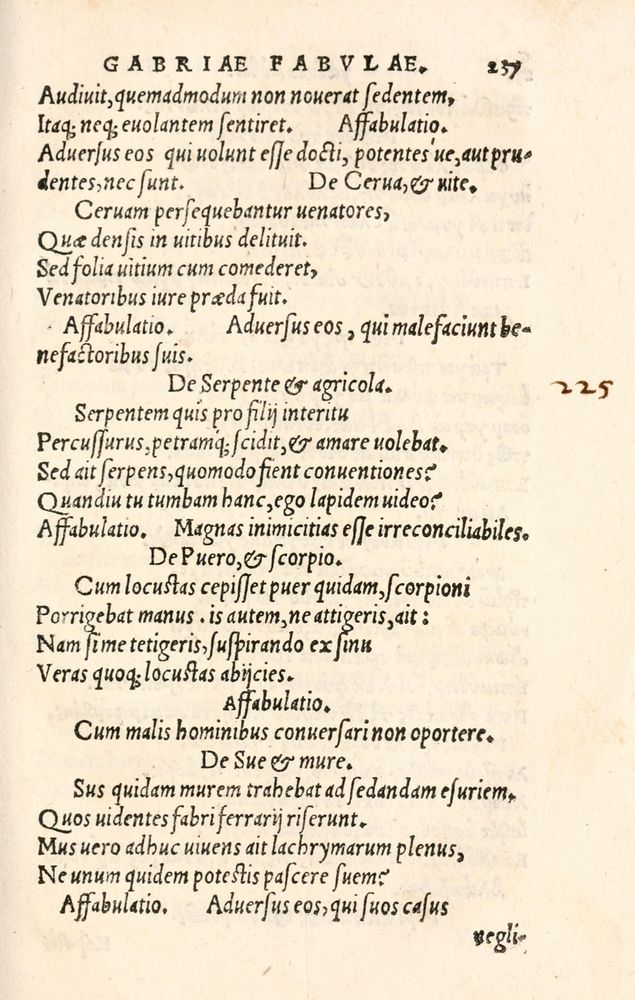 GABRIAE FABVLAE. 237
Audiuit, quemadmodum non nouerat sedentem,
Itaq; neq; euolantem sentiret. Affabulatio.
Aduersus eos qui uolunt esse docti, potentes'ue, aut pru-
dentes, nec sunt. De Cerua, & uite.
Ceruam persequebantur uenatores,
Quæ densis in uitibus delituit.
Sed folia uitium cum comederet,
Venatoribus iure præda fuit.
Affabulatio. Aduersus eos, qui malefaciunt be-
nefactoribus suis.
De Serpente & agricola. 225
Serpentem quis pro filij interitu
Percussurus, petramq; scidit, & amare uolebat.
Sed ait serpens, quomodo fient conuentiones?
Quandiu tu tumbam hanc, ego lapidem uideo?
Affabulatio. Magnas inimicitias esse irreconciliabiles.
De Puero, & scorpio.
Cum locustas cepisset puer quidam, scorpioni
Porrigebat manus. is autem, ne attigeris, ait:
Nam si me tetigeris, suspirando ex sinu
Veras quoq; locustas abijcies.
Affabulatio.
Cum malis hominibus conuersari non oportere.
De Sue & mure.
Sus quidam murem trahebat ad sedandam esuriem,
Quos uidentes fabri ferrarij riserunt.
Mus uero adhuc uiuens ait lachrymarum plenus,
Ne unum quidem potestis pascere suem?
Affabulatio. Aduersus eos, qui suos casus
negli-